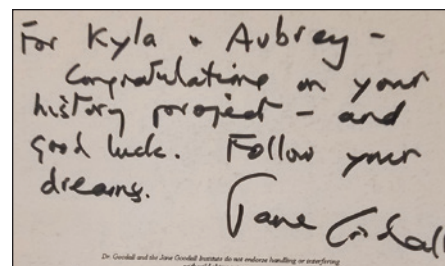 For Kyla & Aubrey -
Congratulations on your
history project - and
good luck. Follow your
dreams.
Jane Goodall
Dr. Goodall and the Jane Goodall Institute do not endorse handling or interfering